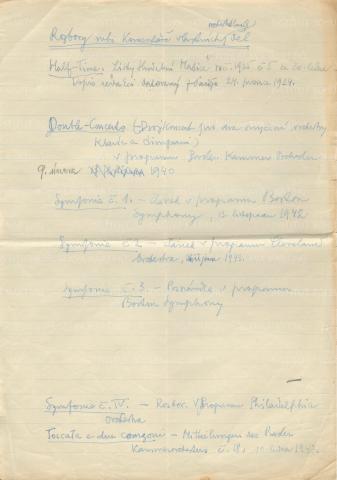 Rozbory neb Komentáře vlastních děl
Half-Time: Listy Hudební Matice roč. 1925 č 5 ze 20. ledna
Dopis redakci datovaný Paříž 24. února 1924.
Double-Concerto (Dvojkoncert pro dva smyčcové orchestry
Klavír a timpani)
v programu Basler Kammer Orchester
9. února 1940
Symfonie č. 1. – článek v programu Boston
Symphony, 13 listopadu 1942
Symfonie č. 2. – článek v programu Cleveland
Orchestra, října 1943.
Symfonie č. 3. – Poznámka v programu
Boston Symphony
Symfonie č. IV. – Rozbor. V Programu Philadelphia
orchestra
Toccata e due canzoni – Mitteilungen des Basler
Kammerorchesters č. 18. 10 ledna 1947.